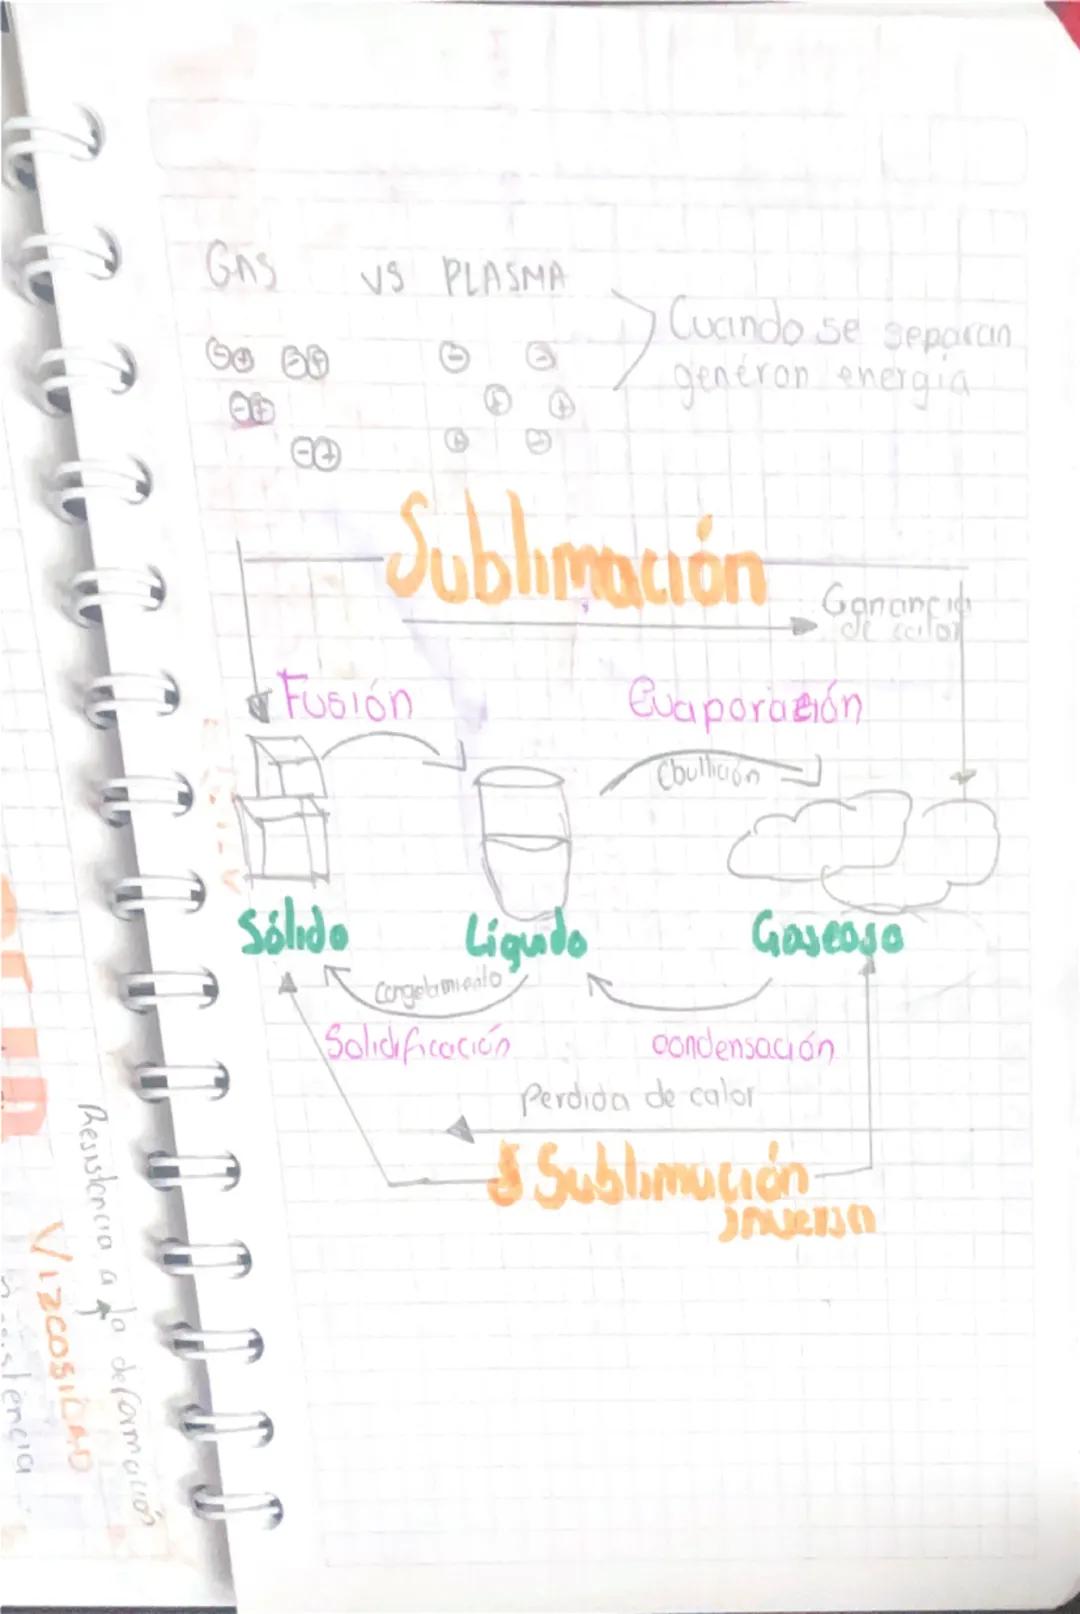 GAS VS PLASMA
Cuando se separan
generan energía
Sublimación
Ganancia
de calor
Fusión
Evaporación
Ebullición
Sólido
Líquido
Gaseoso
Congelamiento
Solidificación
condensación
Perdida de calor
Sublimación
inversa
Resistencia a la deformación
VIZCOSIDAD